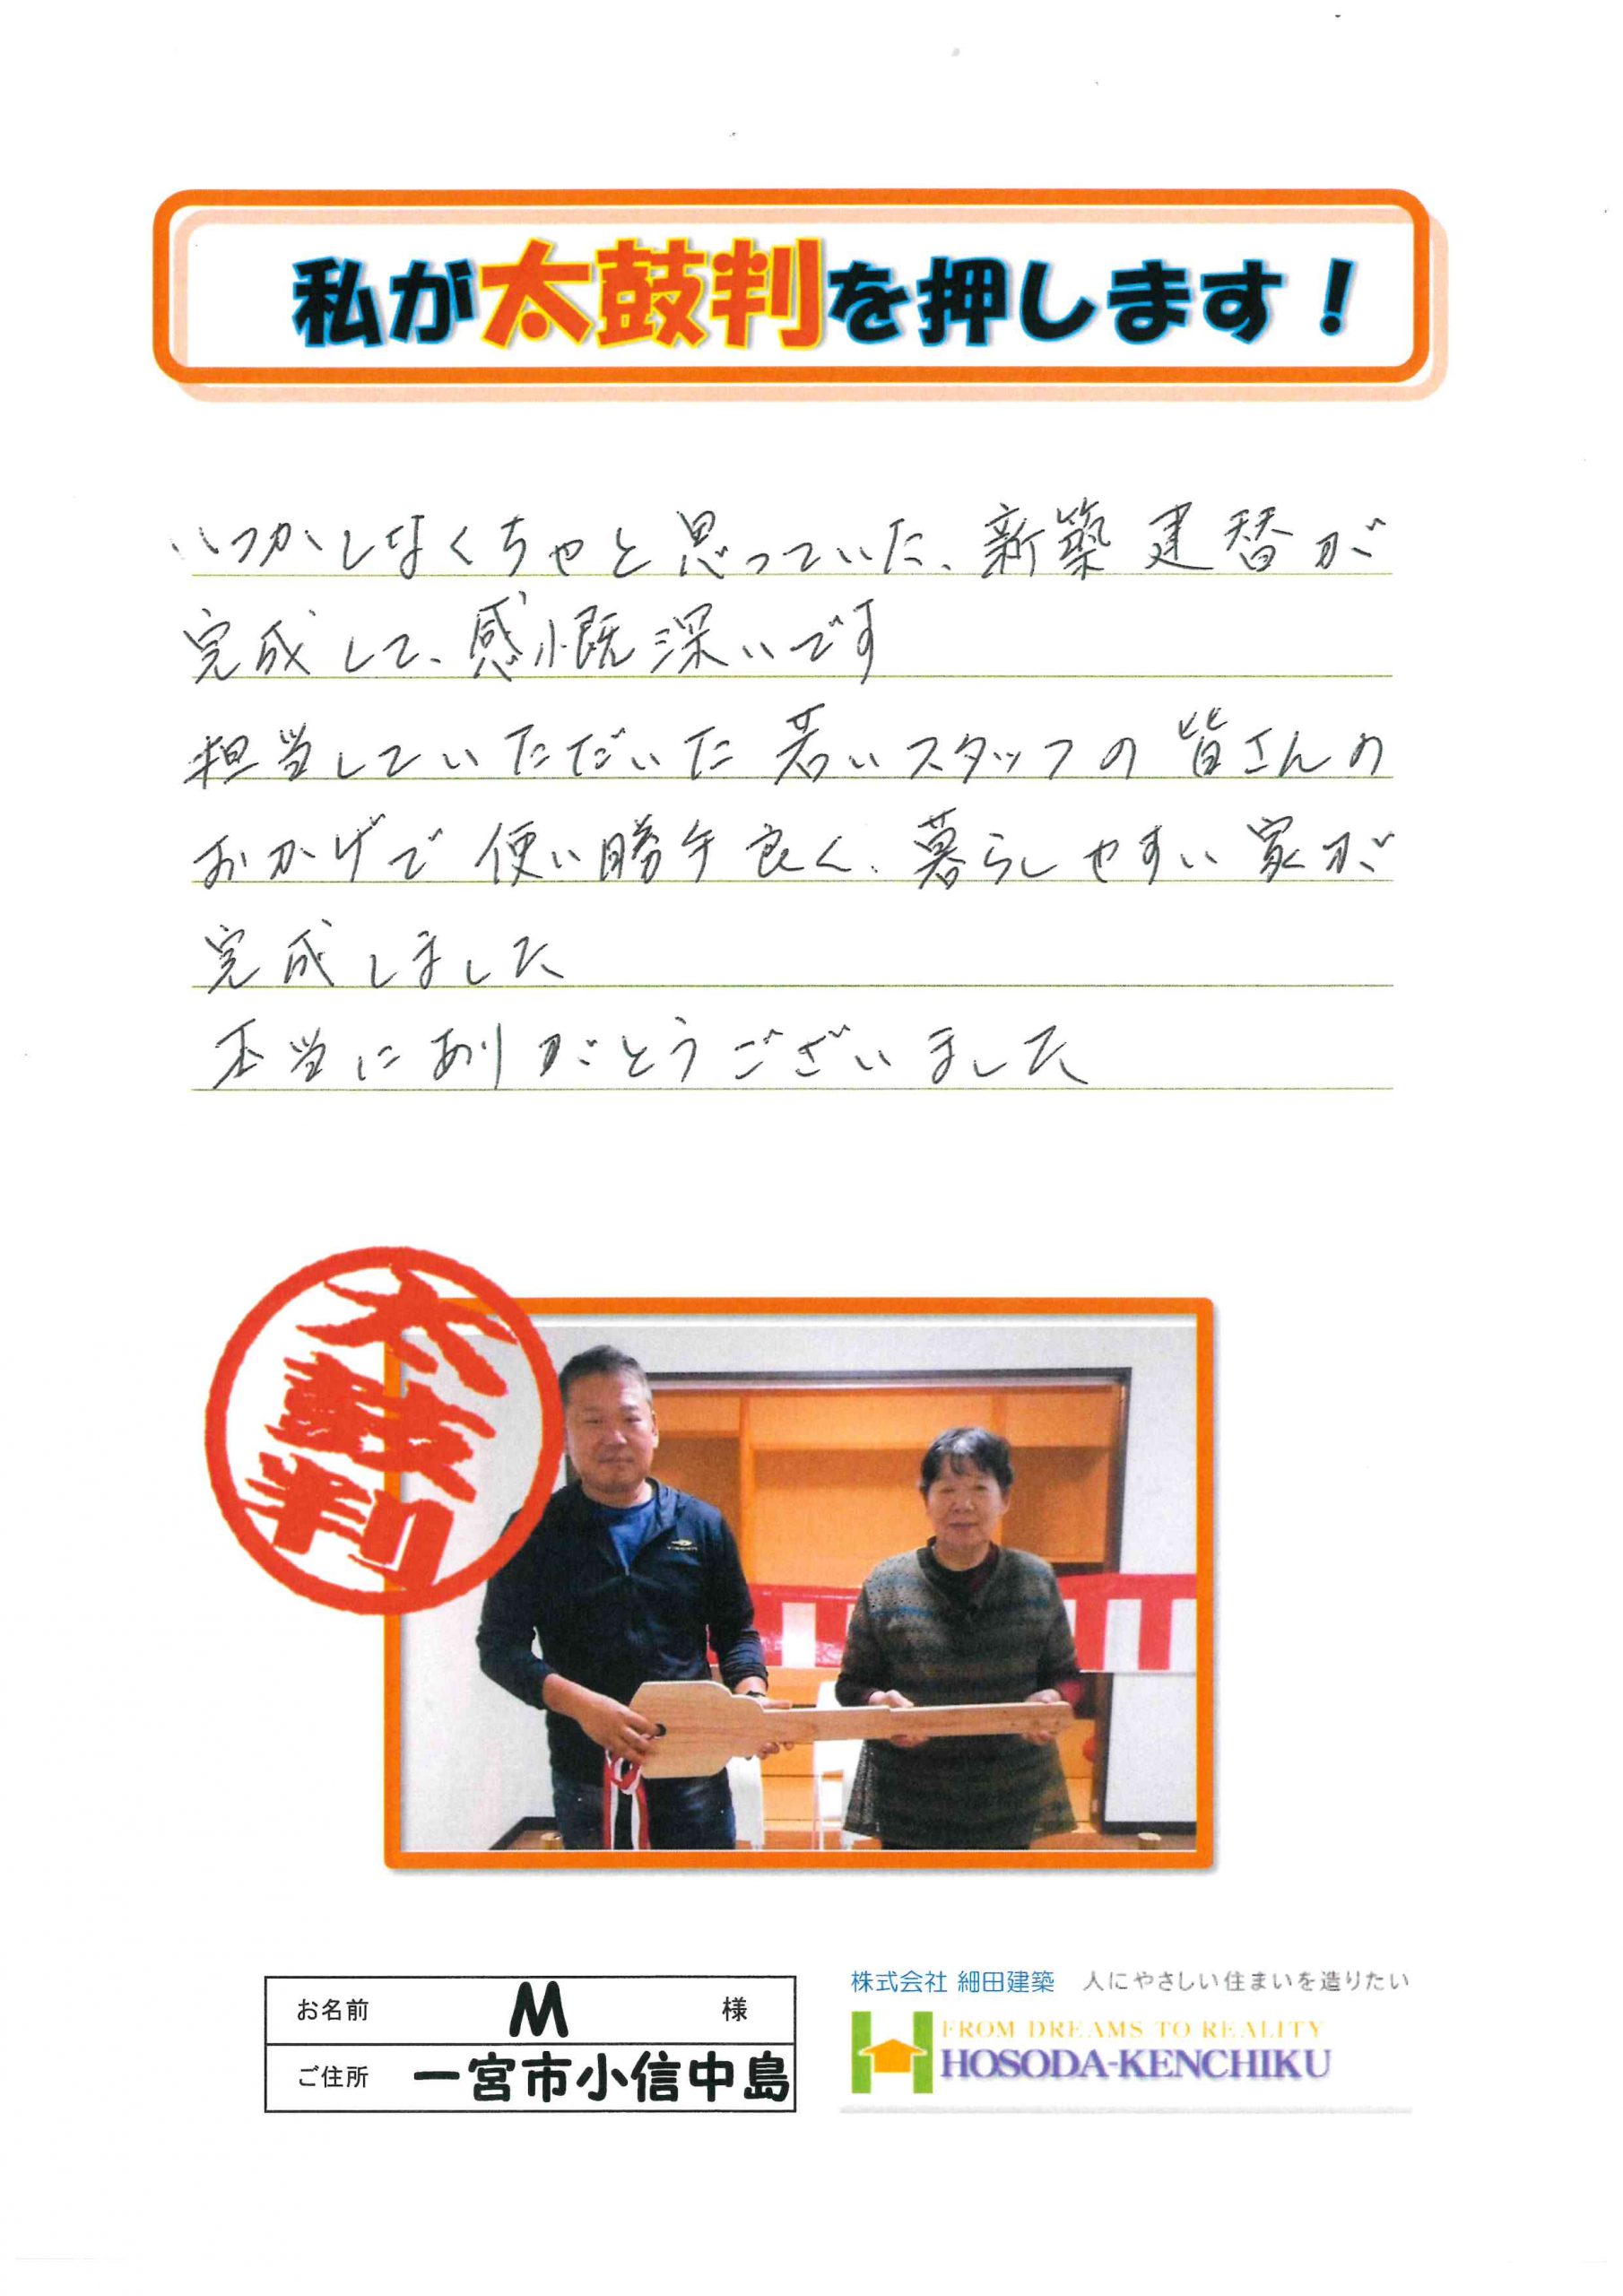 私が太鼓判を押します！
いつかしなくちゃと思っていた、新築建替が
完成して、感慨深いです
担当していただいた若いスタッフの皆さんの
おかげで使い勝手良く、暮らしやすい家が
完成しました
本当にありがとうございました
太鼓判
お名前 M 様
ご住所 一宮市小信中島
株式会社 細田建築 人にやさしい住まいを造りたい
FROM DREAMS TO REALITY
HOSODA-KENCHIKU